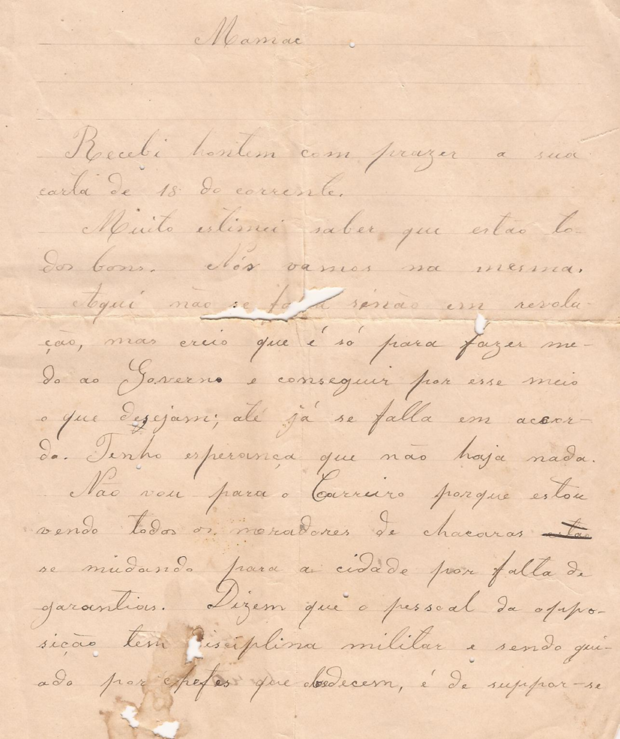 Mamãe
Recebi hontem com prazer a sua
carta de 18 do corrente.
Muito estimei saber que estão to-
dos bons. Nós vamos na mesma.
Aqui não se falla sinão em revolu-
ção, mas creio que é só para fazer me-
do ao Governo e conseguir por esse meio
o que desejam; até já se falla em accor-
do. Tenho esperança que não haja nada.
Não vou para o Carreiro porque estou
vendo todos os moradores de chacaras
se mudando para a cidade por falta de
garantias. Dizem que o pessoal da oppo-
sição tem disciplina militar e sendo gui-
ado por chefes que obedecem, é de suppor-se